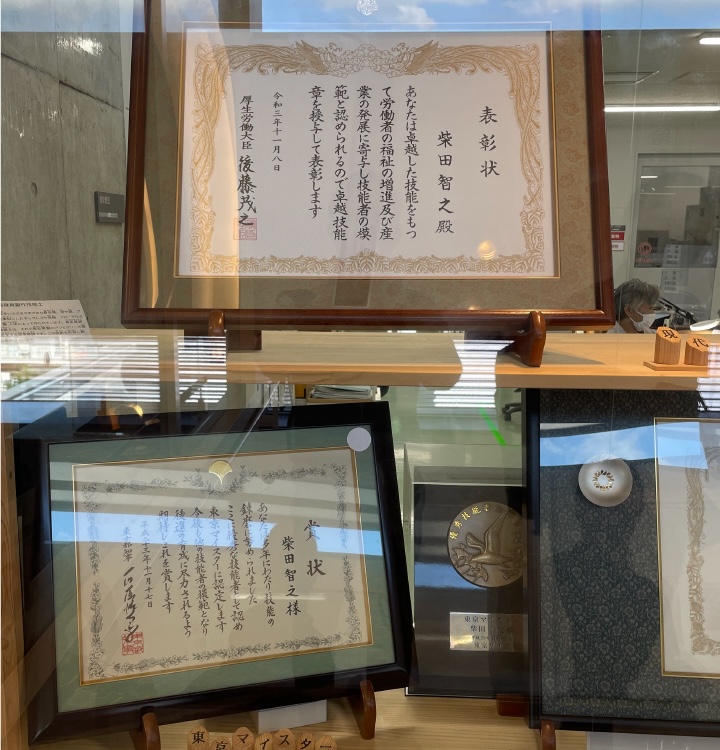 表彰状
柴田智之殿
あなたは卓越した技能をもつ
て労働者の福祉の増進及び産
業の発展に寄与し技能者の模
範と認められるので卓越技能
章を授与して表彰します
令和三年十一月八日
厚生労働大臣 後藤茂之
現
代
賞状
柴田智之様
あなたは多年にわたり技能の
錬磨に努められました
ここに優秀な技能者として認め
東京マイスターに認定します
今後とも他の技能者の模範となり
後進の育成に尽力されるよう
期待しこれを賞します
平成二十三年十一月十七日
東京都知事 石原慎太郎
優秀技能
東京マ
柴田
東京
東京マイスター